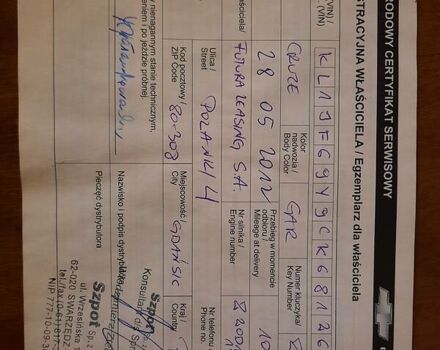 RODOWY CERTYFIKAT SERWISOWY
STRACYJNA WŁAŚCICIELA / Egzemplarz dla właściciela
(VIN) /
(VIN)
KL1JF69Y9CK68126
CRUZE
Kolor nadwozia / Body Color
GAR
Numer kluczyka/ Key Number
28 05 2012
Przebieg w momencie odbioru / Mileage at delivery
10
właściciela/
FUTURA LEASING S.A.
Nr silnika / Engine number
Ulica / Street
POLANKI 4
Nr telefonu / Phone no.
Kod pocztowy / ZIP Code
80-308
Miejscowość / City
GDAŃSK
Kraj / Country
w nienagannym stanie technicznym,
i po jeździe próbnej.
Szpot
Konsulta
Nazwisko i podpis dystrybutora
Pieczęć dystrybutora
Szpot Sp. z
ul. Wrzesińska 1
62-020 SWARZĘDZ
NIP 777-10-09-3